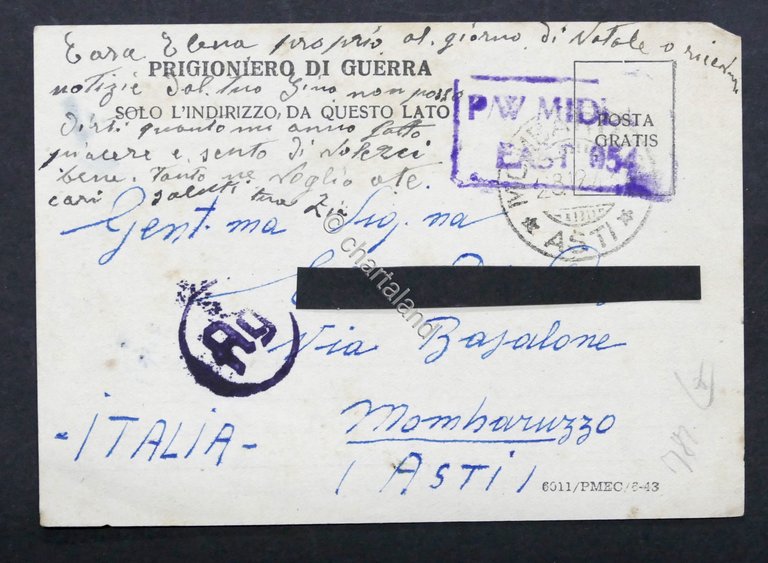 Cara Elena proprio al giorno di Natale o ricevuto
PRIGIONIERO DI GUERRA
notizie dal tuo Gino non posso
SOLO L'INDIRIZZO, DA QUESTO LATO
dirti quanto mi anno fatto
piacere e sento di
bene. Tanto ne Voglio a te.
cari saluti tua Zia
P/W MIDDLE
EAST 954
POSTA
GRATIS
28.12.4
* ASTI *
Gent.ma Sig.na
Via Basalone
Mombaruzzo
(ASTI)
- ITALIA -
Ag
6011/PMEC/6-43
© chartaland